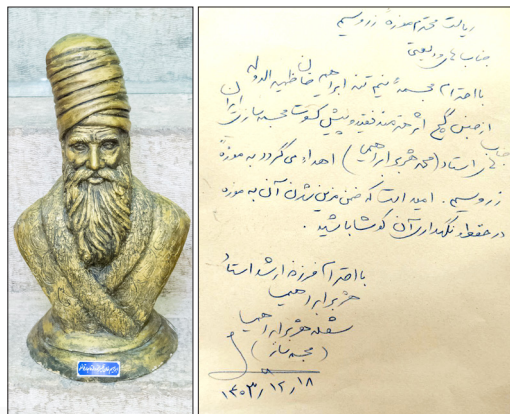 ریاست محترم موزه زروسیم
جناب های ودیعتی
با احترام مجسمه نیم تنه ابراهیم خان ظهیرالدوله
از جنس گچ اثر هنرمند فقید و پیش کسوت مجسمه سازی ایران
جناب استاد (محمد هژبر ابراهیمی) اهداء می گردد به موزه
زروسیم. امید است که ضمن مزین شدن آن به موزه
در حفظ و نگهداری آن کوشا باشید.
با احترام فرزند ارشد استاد
هژبر ابراهیمی
هژبر ابراهیمی
(مجسمه ساز)
۱۴۰۳/۱۲/۱۸